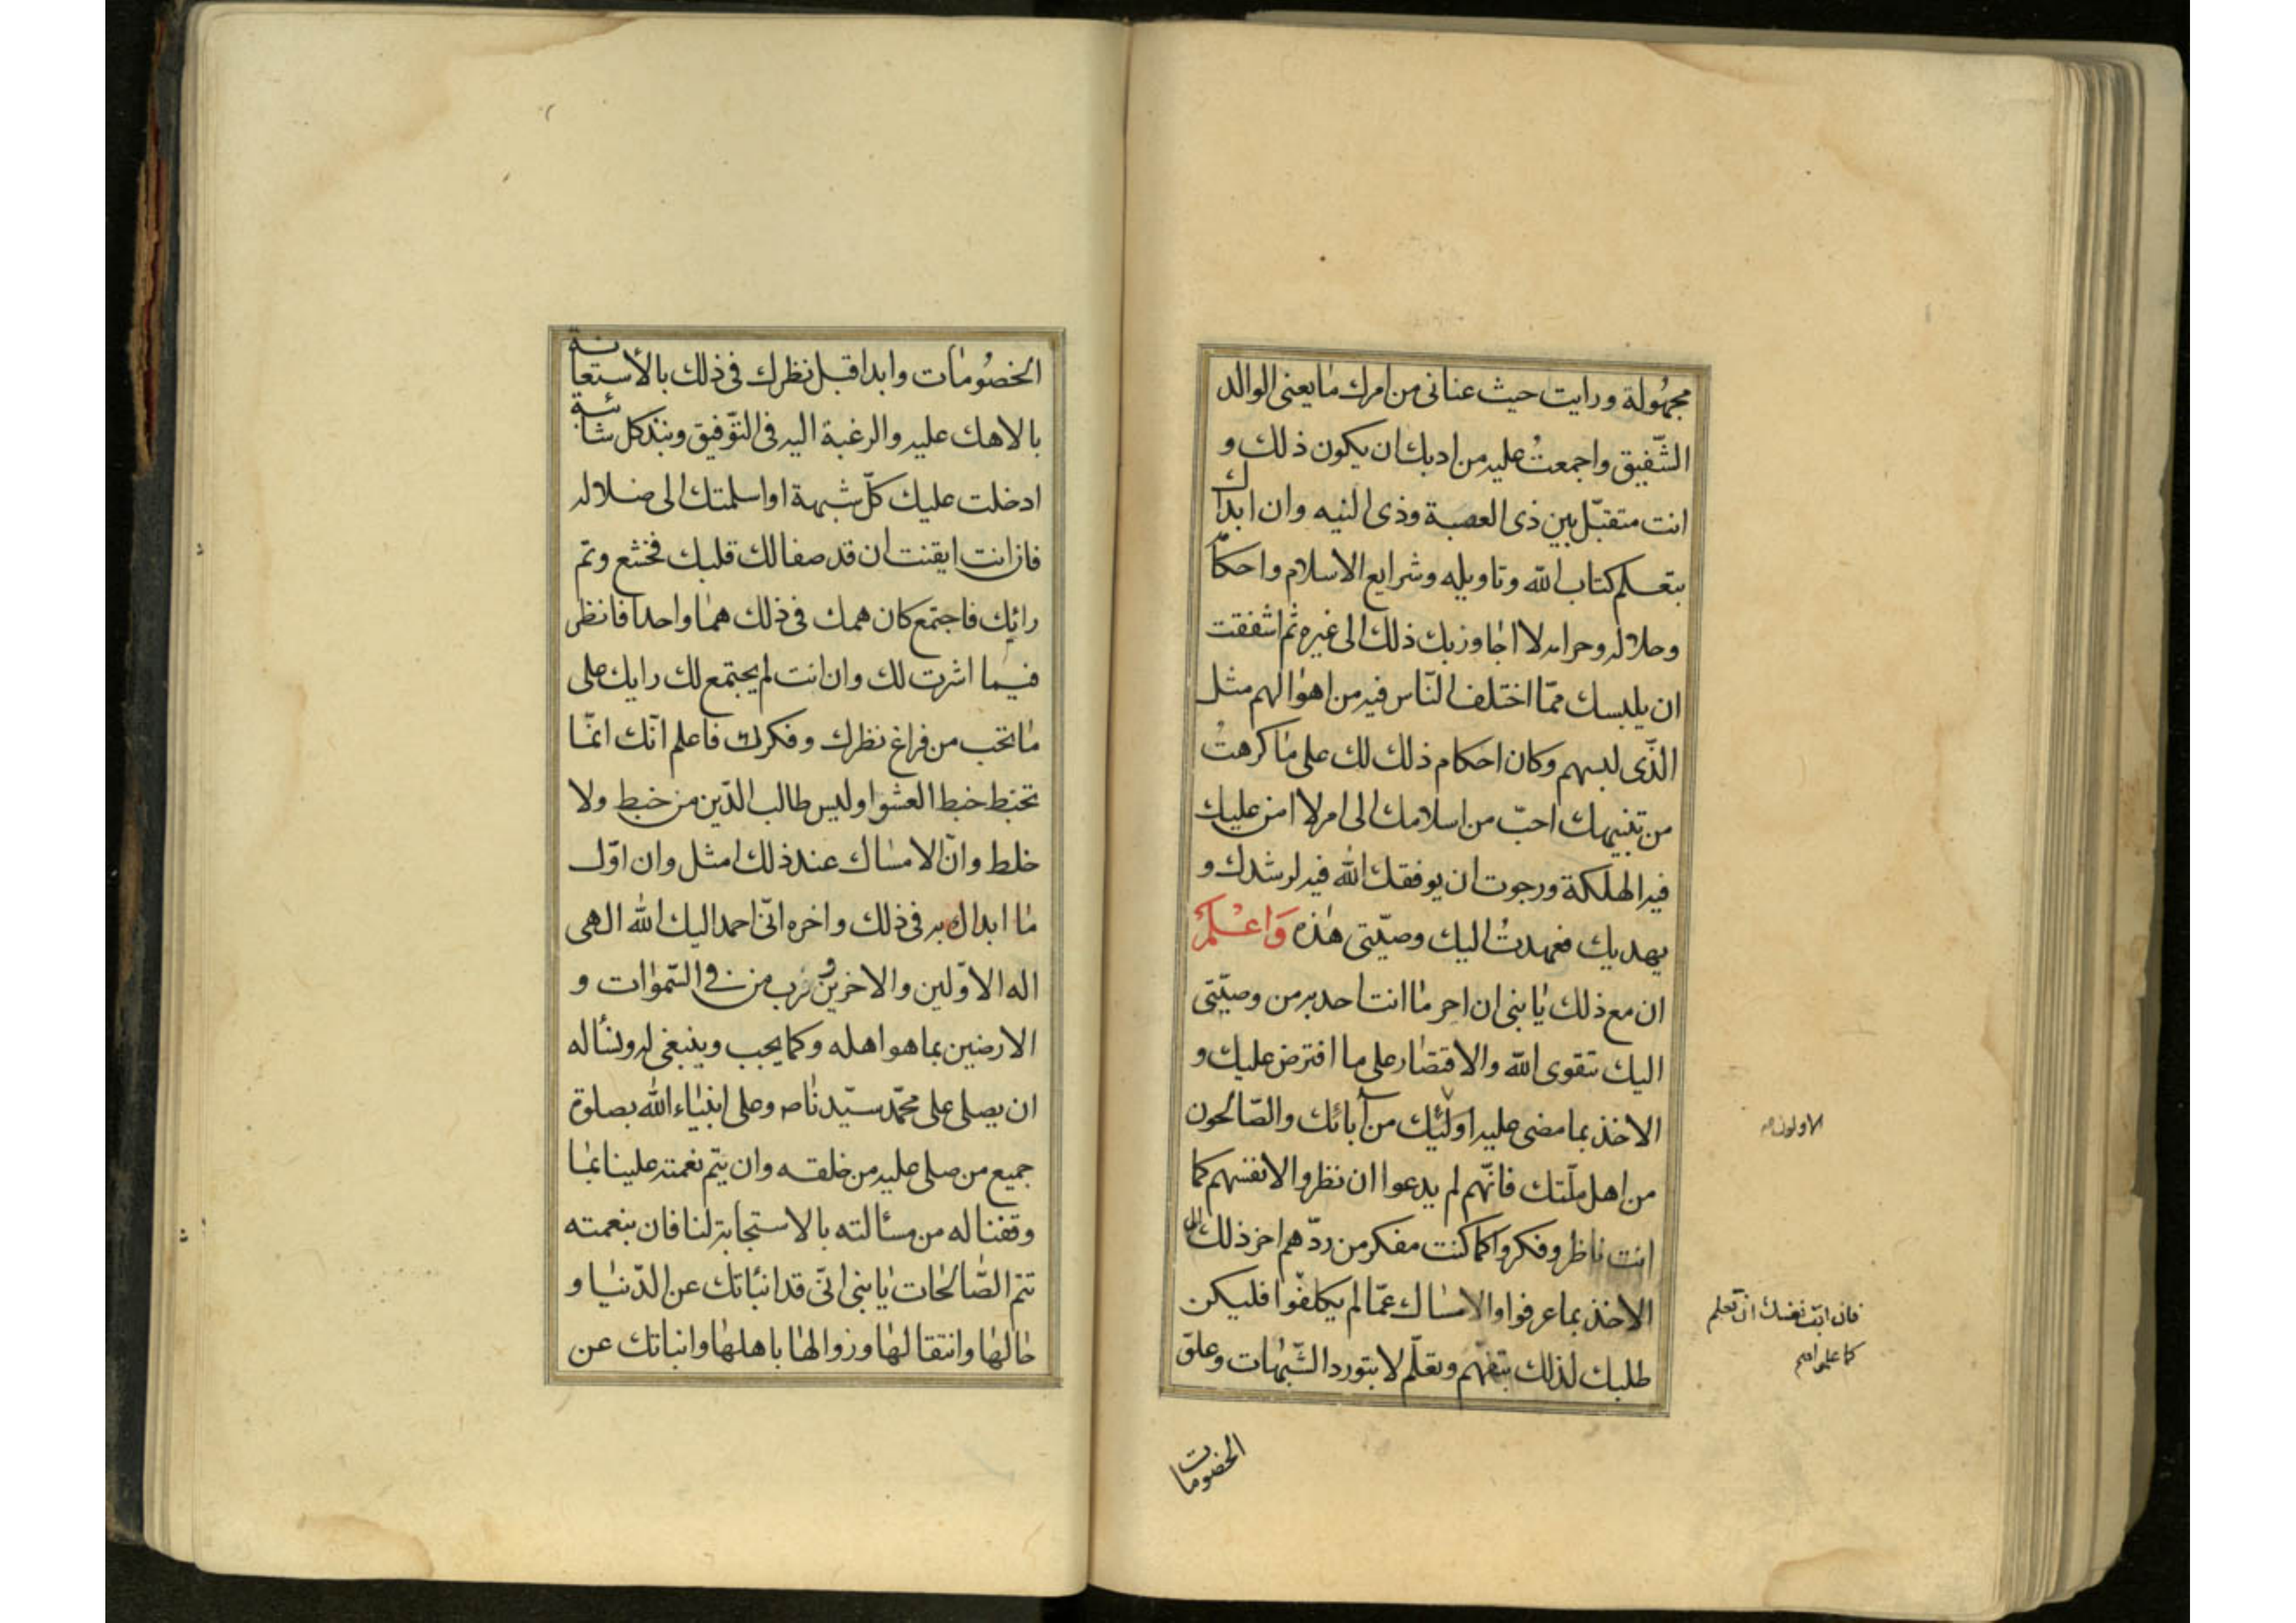 مجهولة ورايت حيث عنانى من امرك ما يعنى الوالد
الشّفيق واجمعتُ عليه من ادبك ان يكون ذلك و
انت متقبّل بين ذى العصبة وذى النيه وان ابداك
بتعلم كتاب الله وتاويله وشرايع الاسلام واحكامه
وحلاله وحرامه لا اجاوز بك ذلك الى غيره ثم اشفقت
ان يلبسك ممّا اختلف النّاس فيه من اهوالهم مثل
الذّى لبسهم وكان احكام ذلك لك على ما كرهتُ
من تنبيهك احبّ من اسلامك الى امر لا امن عليك
فيه الهلكة ورجوت ان يوفقك الله فيه لرشدك و
يهديك فعهدتُ اليك وصيّتى هذه وَاعْلَمْ
ان مع ذلك يا بنى ان احر ما انت احد به من وصيّتى
اليك تقوى الله والاقتصار على ما افترض عليك و
الاخذ بما مضى عليه اولئك من آبائك والصّالحون
من اهل ملّتك فانّهم لم يدعوا ان نظروا لانفسهم كما
انت ناظر وفكروا كما كنت مفكر من ردّهم اخر ذلك الى
الاخذ بما عرفوا والامساك عمّا لم يكلفوا فليكن
طلبك لذلك بتفهم وتعلّم لا بتورد الشّبهات وعلوّ
الاولون
فان ابت نفسك ان تعلم
كما علموا
الخصومات
الخصُومات وابدا قبل نظرك فى ذلك بالاستعانة
بالاهك عليه والرغبة اليه فى التوّفيق ونبذ كل شائبة
ادخلت عليك كلّ شبهة او اسلمتك الى ضلاله
فان انت ايقنت ان قد صفا لك قلبك فخشع وتم
رائك فاجتمع كان همك فى ذلك هما واحدا فانظر
فيما اثرت لك وان انت لم يجتمع لك رايك على
ما تحب من فراغ نظرك وفكرك فاعلم انّك انمّا
تخبط خبط العشوا وليس طالب الدّين من خبط ولا
خلط وانّ الامساك عند ذلك امثل وان اوّل
ما ابداك به فى ذلك واخره انّى احمد اليك الله الهى
اله الاوّلين والاخرين ورب من فى السّموات و
الارضين بما هو اهله وكما يجب وينبغى له ونسأله
ان يصلى على محمّد سيّدنا ص وعلى انبياء الله بصلوة
جميع من صلى عليه من خلقه وان يتم نعمته علينا بما
وفقنا له من مسئالته بالاستجابة لنا فان بنعمته
تتم الصّالحات يا بنى انّى قد انبأتك عن الدّنيا و
حالها وانتقالها وزوالها باهلها وانباتك عن